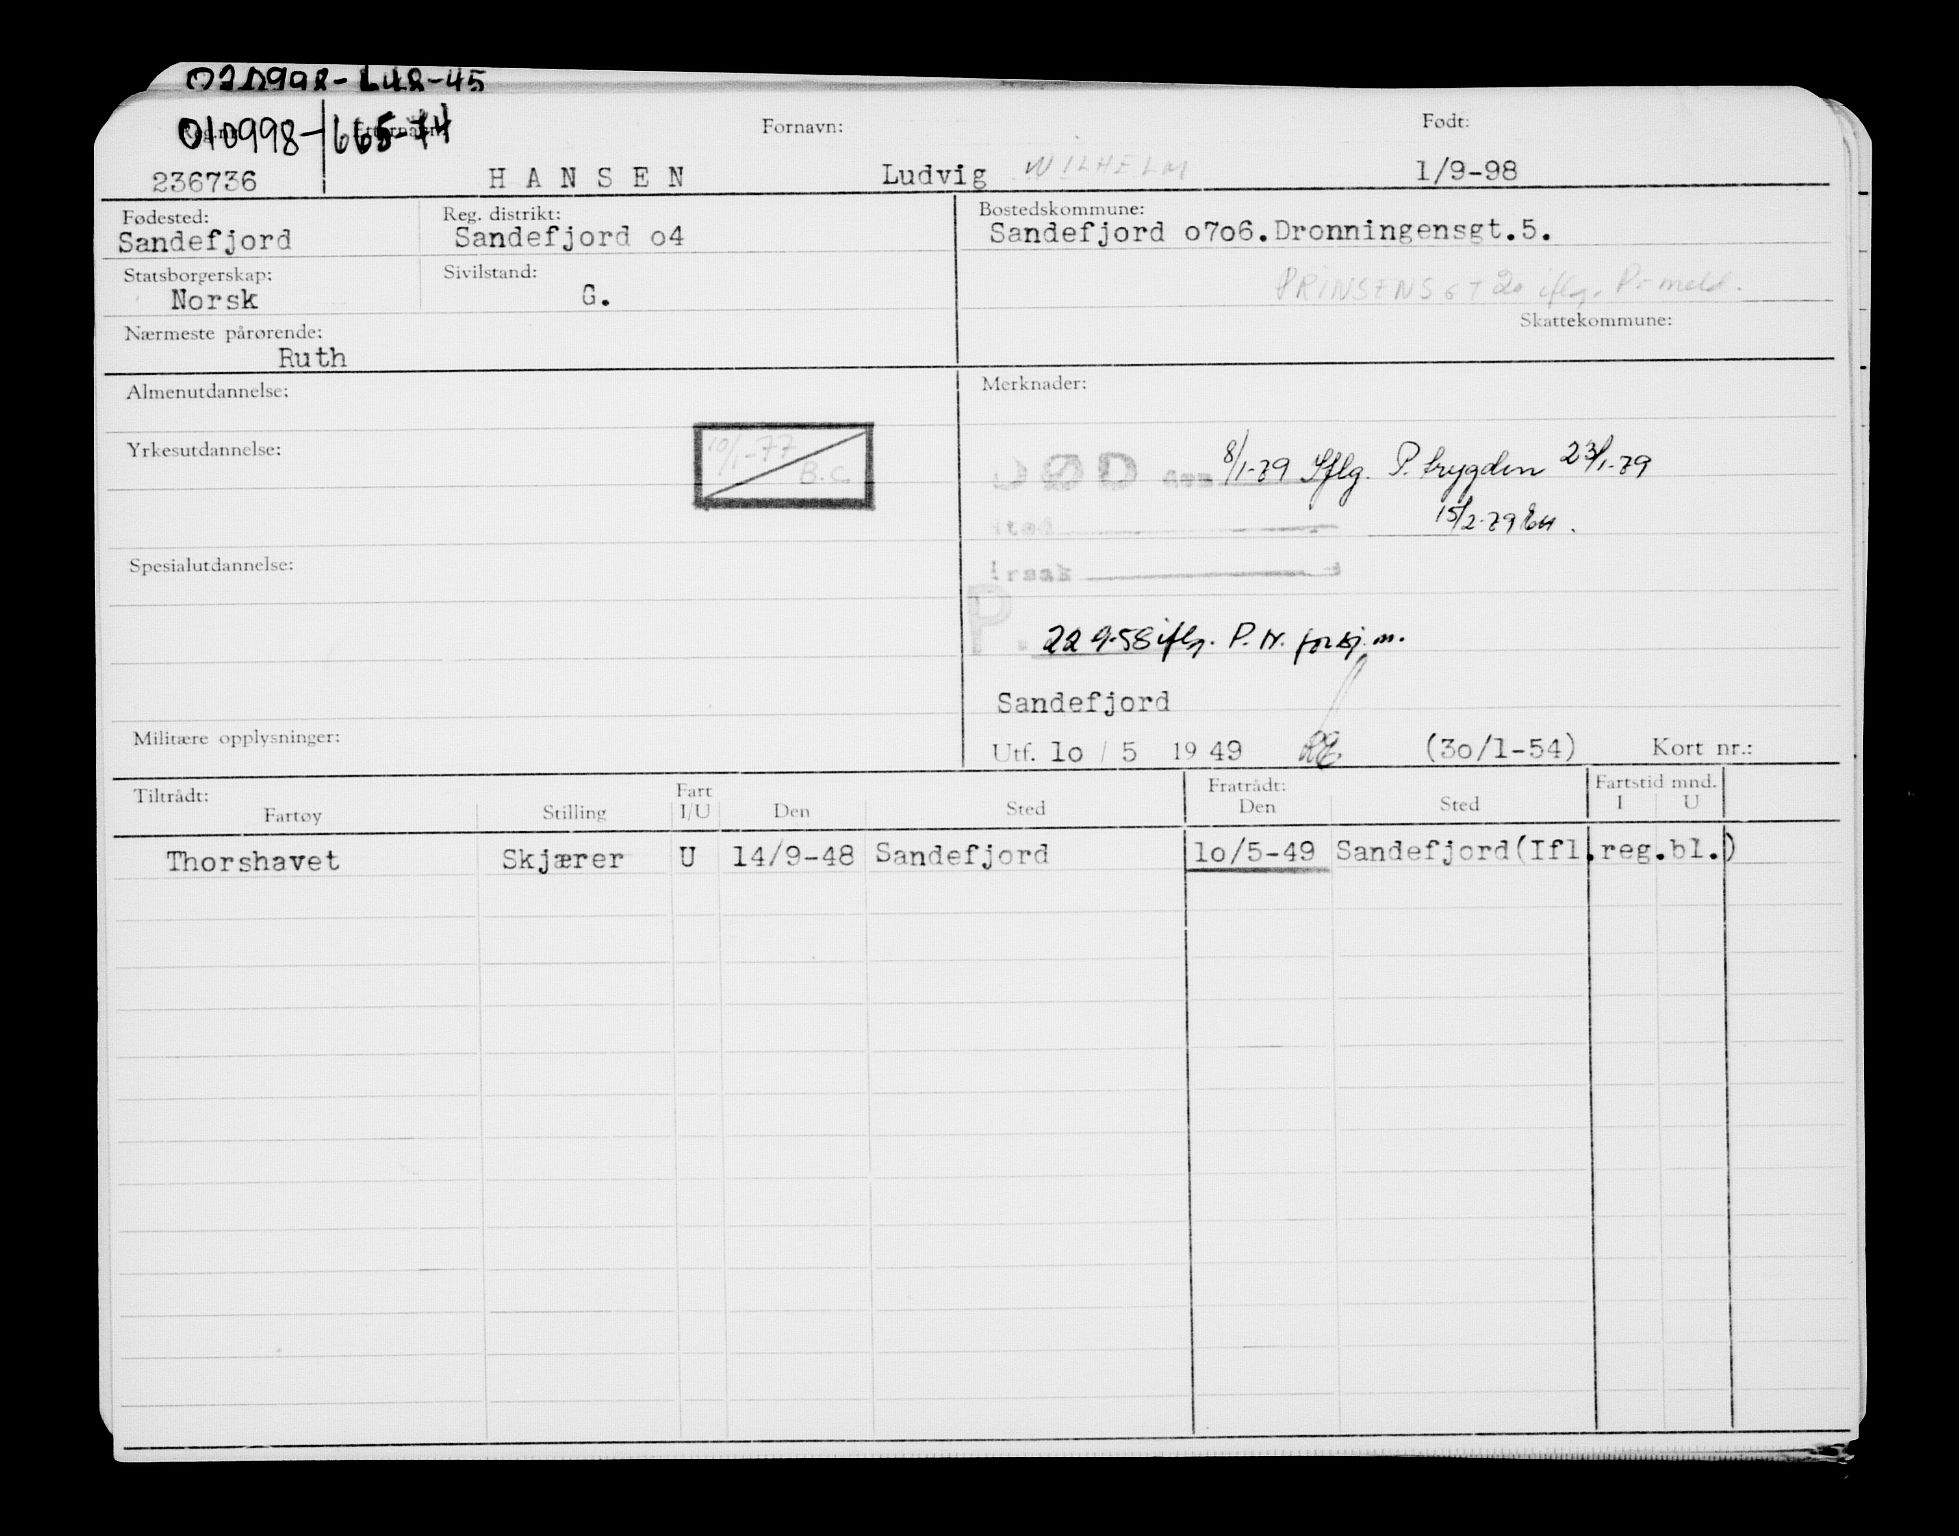 010998-665-14
Reg.nr. Etternavn: Fornavn: Født:
236736 HANSEN Ludvig WILHELM 1/9-98
Fødested: Reg. distrikt: Bostedskommune:
Sandefjord Sandefjord o4 Sandefjord o7o6.Dronningensgt.5.
Statsborgerskap: Sivilstand:
Norsk G. PRINSENSGT 20 iflg. P-meld.
Nærmeste pårørende: Skattekommune:
Ruth
Almenutdannelse: Merknader:
Yrkesutdannelse: 10/1-77 B.C.
DØD den 8/1-79 Iflg. P. trygden 23/1-79
Sted 15/2-79
Årsak
Spesialutdannelse:
P. 22 9-58 iflg. P.Tr.
Sandefjord
Militære opplysninger: Utf. 1o / 5 19 49 (3o/1-54) Kort nr.:
Tiltrådt: Fratrådt: Fartstid mnd.
Fartøy Stilling Fart I/U Den Sted Den Sted I U
Thorshavet Skjærer U 14/9-48 Sandefjord 1o/5-49 Sandefjord(Ifl.reg.bl.)